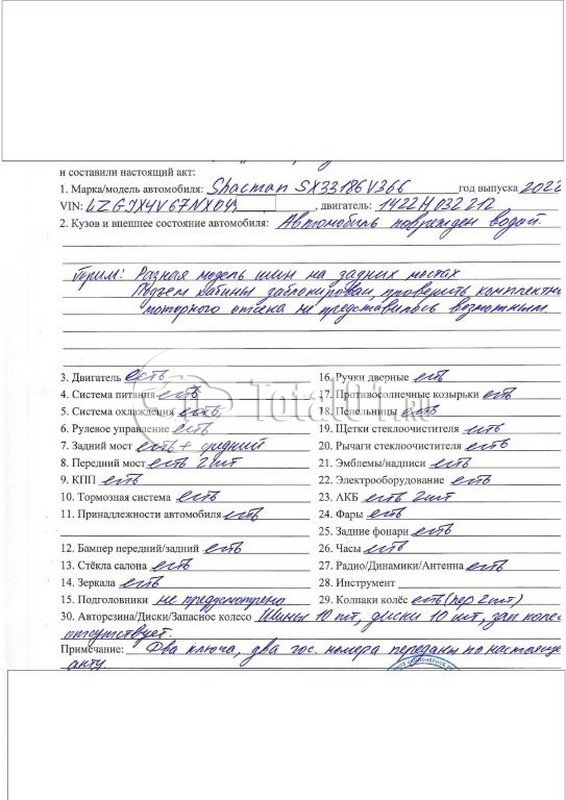 и составили настоящий акт:
1. Марка/модель автомобиля: Shacman SX33186V366 год выпуска 2022
VIN: LZGJX4V67NX04 , двигатель: 1422H032212
2. Кузов и внешнее состояние автомобиля: Автомобиль поврежден водой.
Прим: Разная модель шин на задних мостах
Подъем кабины заблокирован, проверить комплектн
моторного отсека не представилось возможным
3. Двигатель есть
4. Система питания есть
5. Система охлаждения есть
6. Рулевое управление есть
7. Задний мост есть + средний
8. Передний мост есть 2шт
9. КПП есть
10. Тормозная система есть
11. Принадлежности автомобиля есть
12. Бампер передний/задний есть
13. Стёкла салона есть
14. Зеркала есть
15. Подголовники не предусмотрено
16. Ручки дверные есть
17. Противосолнечные козырьки есть
18. Пепельницы есть
19. Щетки стеклоочистителя есть
20. Рычаги стеклоочистителя есть
21. Эмблемы/надписи есть
22. Электрооборудование есть
23. АКБ есть 2шт
24. Фары есть
25. Задние фонари есть
26. Часы есть
27. Радио/Динамики/Антенна есть
28. Инструмент
29. Колпаки колёс есть (пер 2шт)
30. Авторезина/Диски/Запасное колесо Шины 10 шт, диски 10 шт, зап колес
отсутствует.
Примечание: Два ключа, два гос. номера переданы по настояще
акту
Total01.ru